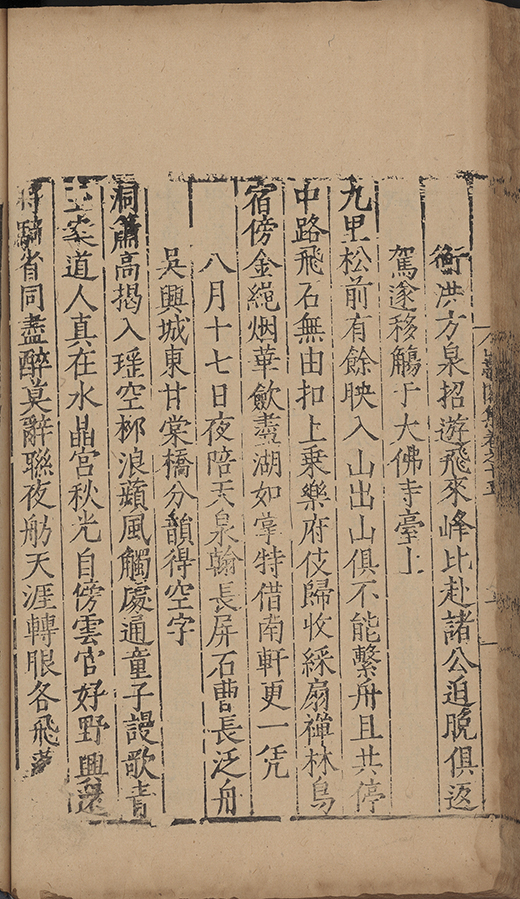 山帶閣集卷之十五 一
衡洪方泉招遊飛來峰比赴諸公迫晚俱返
駕遂移觴于大佛寺臺上
九里松前有餘映入山出山俱不能繫舟且共停
中路飛石無由扣上乗樂府伎歸收綵扇禪林鳥
宿傍金繩烟華歛盡湖如掌特借南軒更一凭
八月十七日夜陪天泉翰長屏石曹長泛舟
吳興城東甘棠橋分韻得空字
洞簫高揭入瑶空柳浪蘋風觸處通童子謾歌青
玉案道人真在水晶宮秋光自傍雲官好野興還
將騎省同盡醉莫辭聯夜舫天涯轉眼各飛蓬